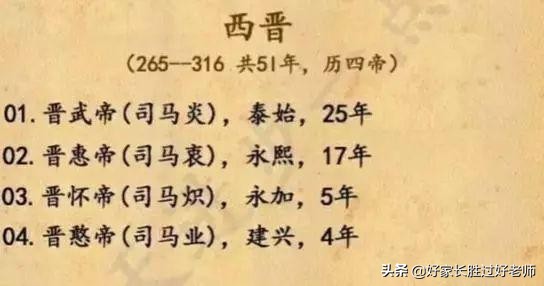 西晋
(265--316 共51年，历四帝)
01.晋武帝(司马炎)，泰始，25年
02.晋惠帝(司马衷)，永熙，17年
03.晋怀帝(司马炽)，永加，5年
04.晋憨帝(司马业)，建兴，4年
头条 @好家长胜过好老师